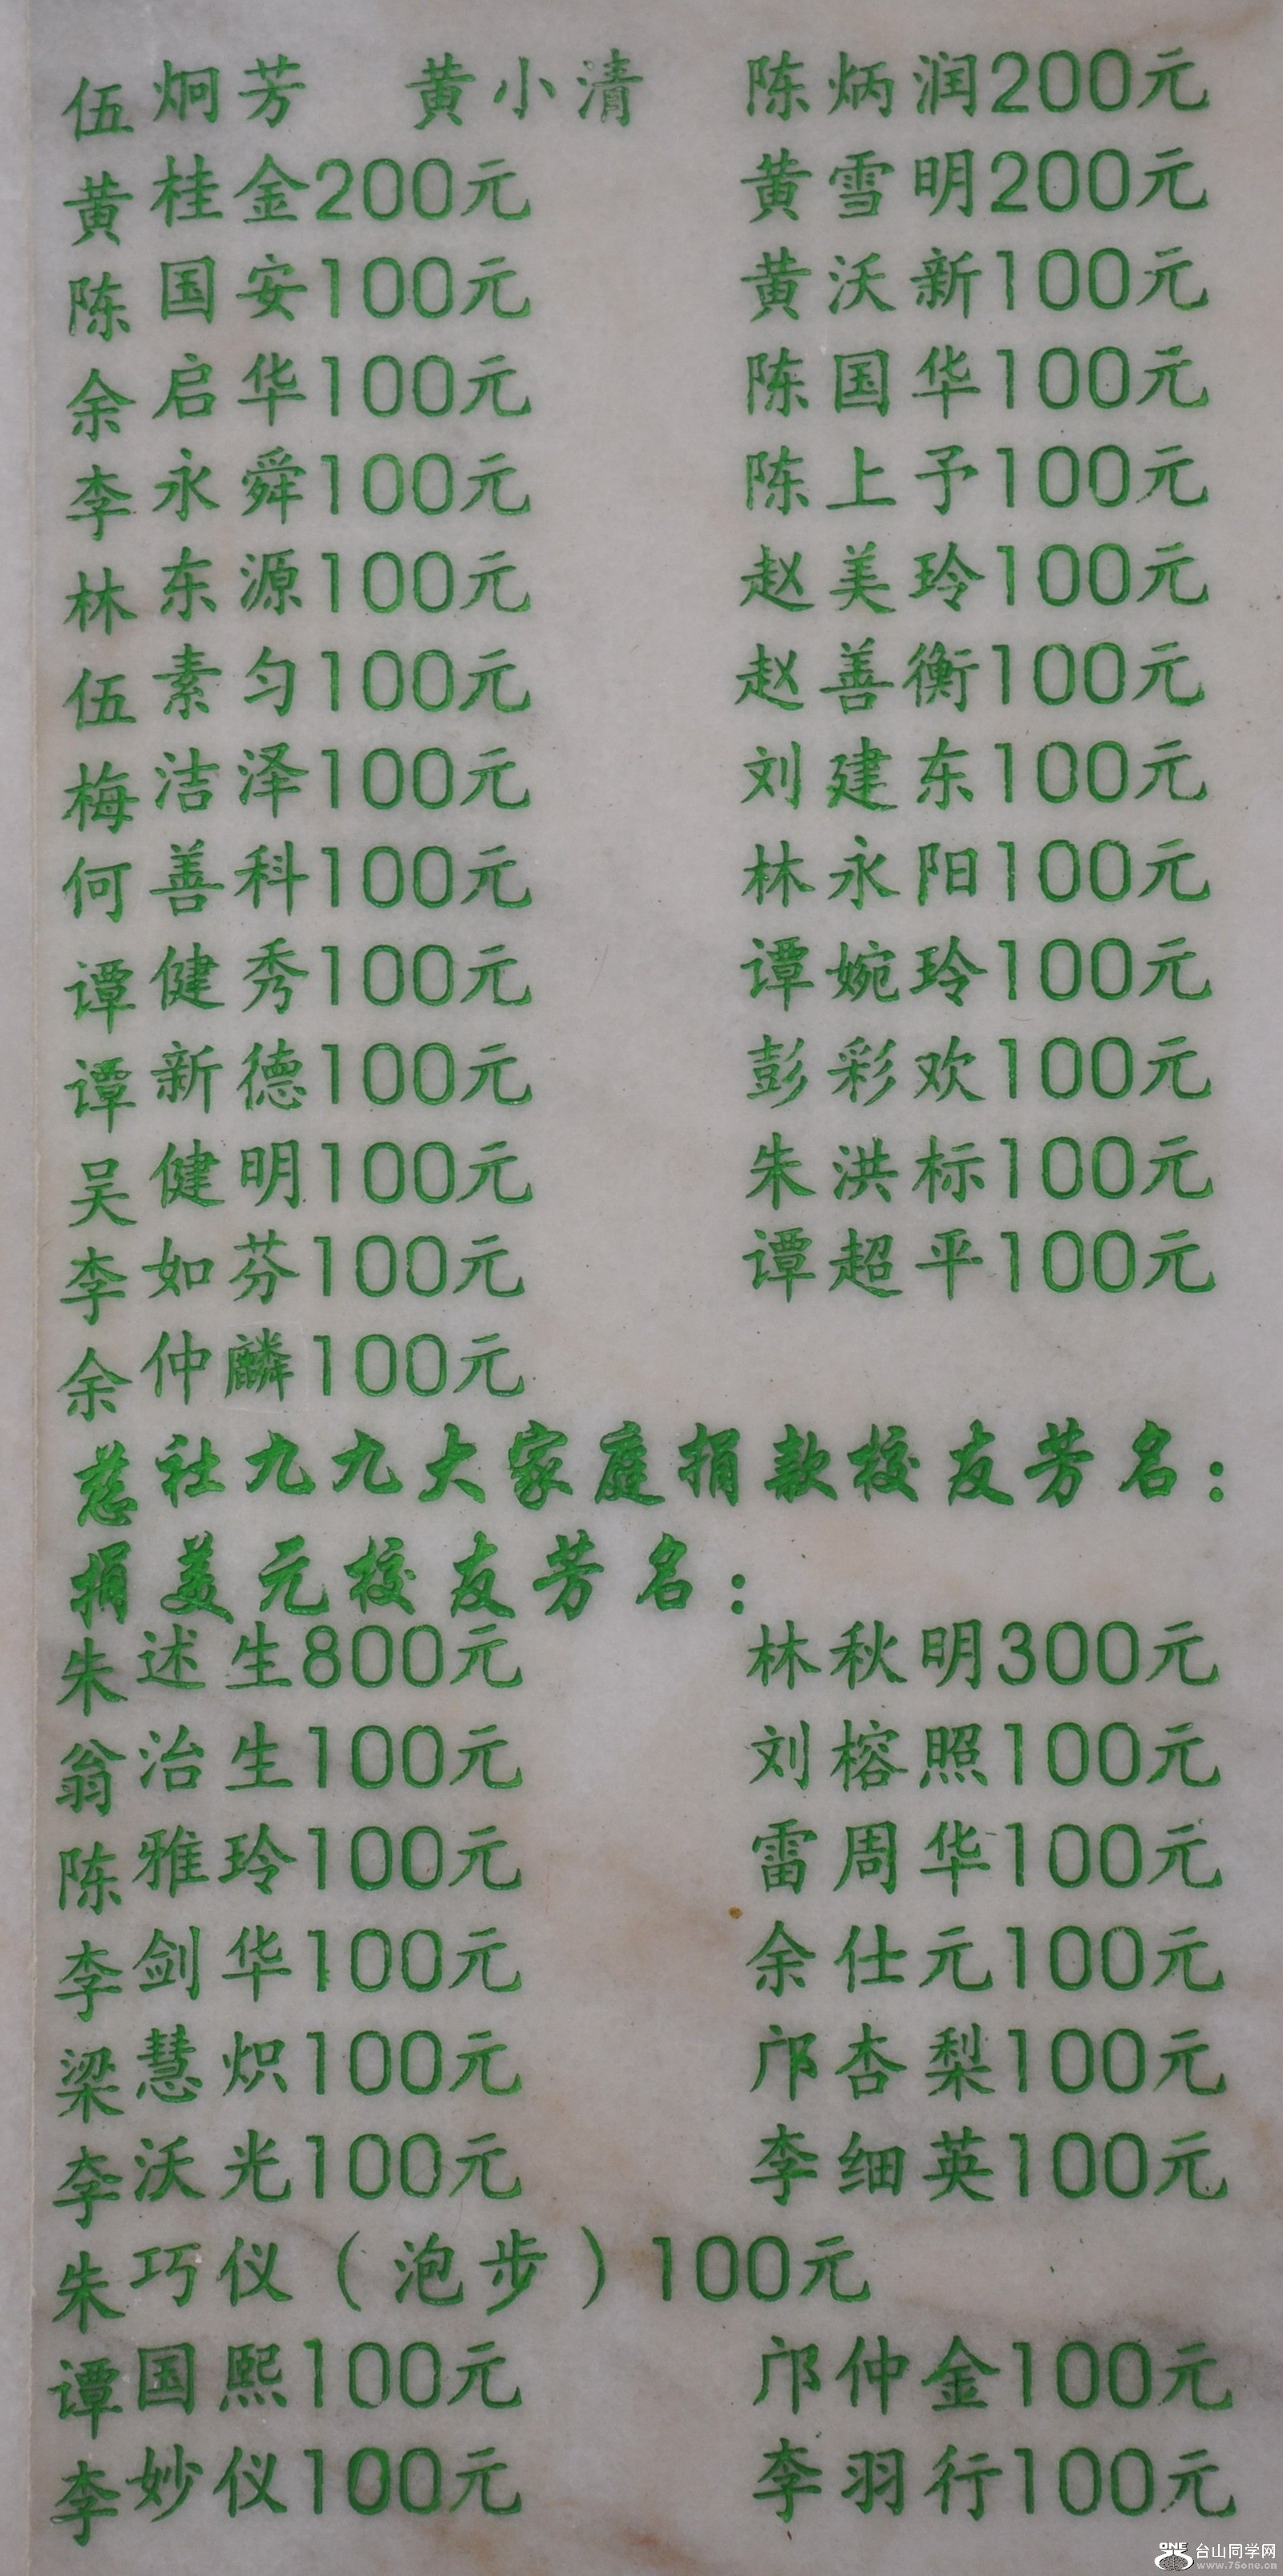 伍炯芳 黄小清 陈炳润200元
黄桂金200元 黄雪明200元
陈国安100元 黄沃新100元
余启华100元 陈国华100元
李永舜100元 陈上予100元
林东源100元 赵美玲100元
伍素匀100元 赵善衡100元
梅洁泽100元 刘建东100元
何善科100元 林永阳100元
谭健秀100元 谭婉玲100元
谭新德100元 彭彩欢100元
吴健明100元 朱洪标100元
李如芬100元 谭超平100元
余仲麟100元
慈社九九大家庭捐款校友芳名：
捐美元校友芳名：
朱述生800元 林秋明300元
翁治生100元 刘榕照100元
陈雅玲100元 雷周华100元
李剑华100元 余仕元100元
梁慧炽100元 邝杏梨100元
李沃光100元 李细英100元
朱巧仪（泡步）100元
谭国熙100元 邝仲金100元
李妙仪100元 李羽行100元
ONE 台山同学网
www.75one.cn